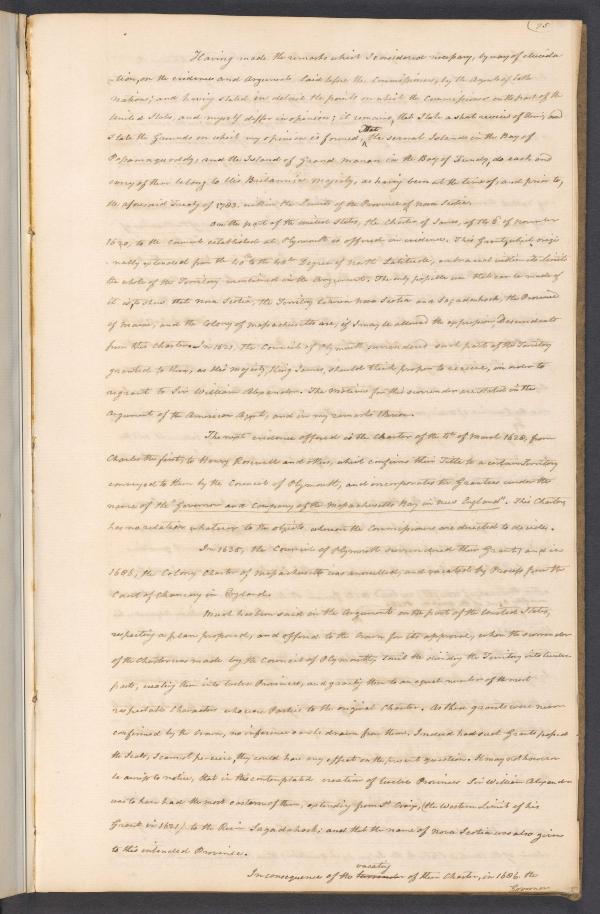 95
Having made the remarks which I considered necessary, by way of elucida
-tion, on the evidence and Arguments laid before the Commissioners, by the Agents of both
Nations; and having stated in detail the points on which the Commissioner on the part of the
United States, and myself differ in opinion; it remains, that I take a short review of them, and
state the Grounds on which my opinion is formed, That the several Islands in the Bay of
Passamaquoddy, and the Island of Grand Manan in the Bay of Fundy, do each and
every of them belong to His Britannic Majesty, as having been at the time of, and prior to,
the aforesaid Treaty of 1783, within the Limits of the Province of Nova Scotia.
On the part of the United States, the Charter of James, of the 3d of November
1620, to the Council established at Plymouth is offered in evidence. This Grant, which origi
-nally extended from the 40th to the 48th Degree of North Latitude, embraced within its limits
the whole of the Territory mentioned in the Argument. The only possible use that can be made of
it is, to shew that Nova Scotia, the Territory between Nova Scotia and Sagadahock, the Province
of Maine, and the Colony of Massachusetts are, if I may be allowed the expression, Descendants
from this Charter. In 1621, the Council of Plymouth surrendered such part of the Territory
granted to them, as His Majesty, King James, should think proper to receive, in order to
regrant to Sir William Alexander. The motives for this surrender are stated in the
Argument of the American Agent, and in my remarks thereon.
The next evidence offered is the Charter of the 4th of March 1628, from
Charles the first, to Henry Roswell and others, which confirms their Title to a certain Territory
conveyed to them by the Council of Plymouth, and incorporates the Grantees under the
name of the "Governor and Company of the Massachusetts Bay in New England". This Charter
has no relation whatever to the objects, whereon the Commissioners are directed to decide.
In 1635, the Council of Plymouth surrendered their Grant, and in
1685, the Colony Charter of Massachusetts was annulled, and vacated by Process from the
Court of Chancery in England.
Much has been said in the Argument on the part of the United States,
respecting a plan proposed, and offered to the Crown for its approval, when the surrender
of the Charter was made by the Council of Plymouth, viz the dividing the Territory into twelve
parts, creating them into twelve Provinces, and granting them to an equal number of the most
respectable Characters, who were Parties to the original Charter. As these grants were never
confirmed by the Crown, no inference can be drawn from them. Indeed had such Grants passed
the Seals, I cannot perceive, they could have any effect on the present question. It may not however
be amiss to notice, that in this contemplated creation of twelve Provinces Sir William Alexander
was to have had the most eastern of them, extending from St Croix, (the Western limit of his
Grant in 1621) to the River Sagadahock; and that the name of Nova Scotia was also given
to this intended Province.
In consequence of the vacating of their Charter, in 1686 the
Governor